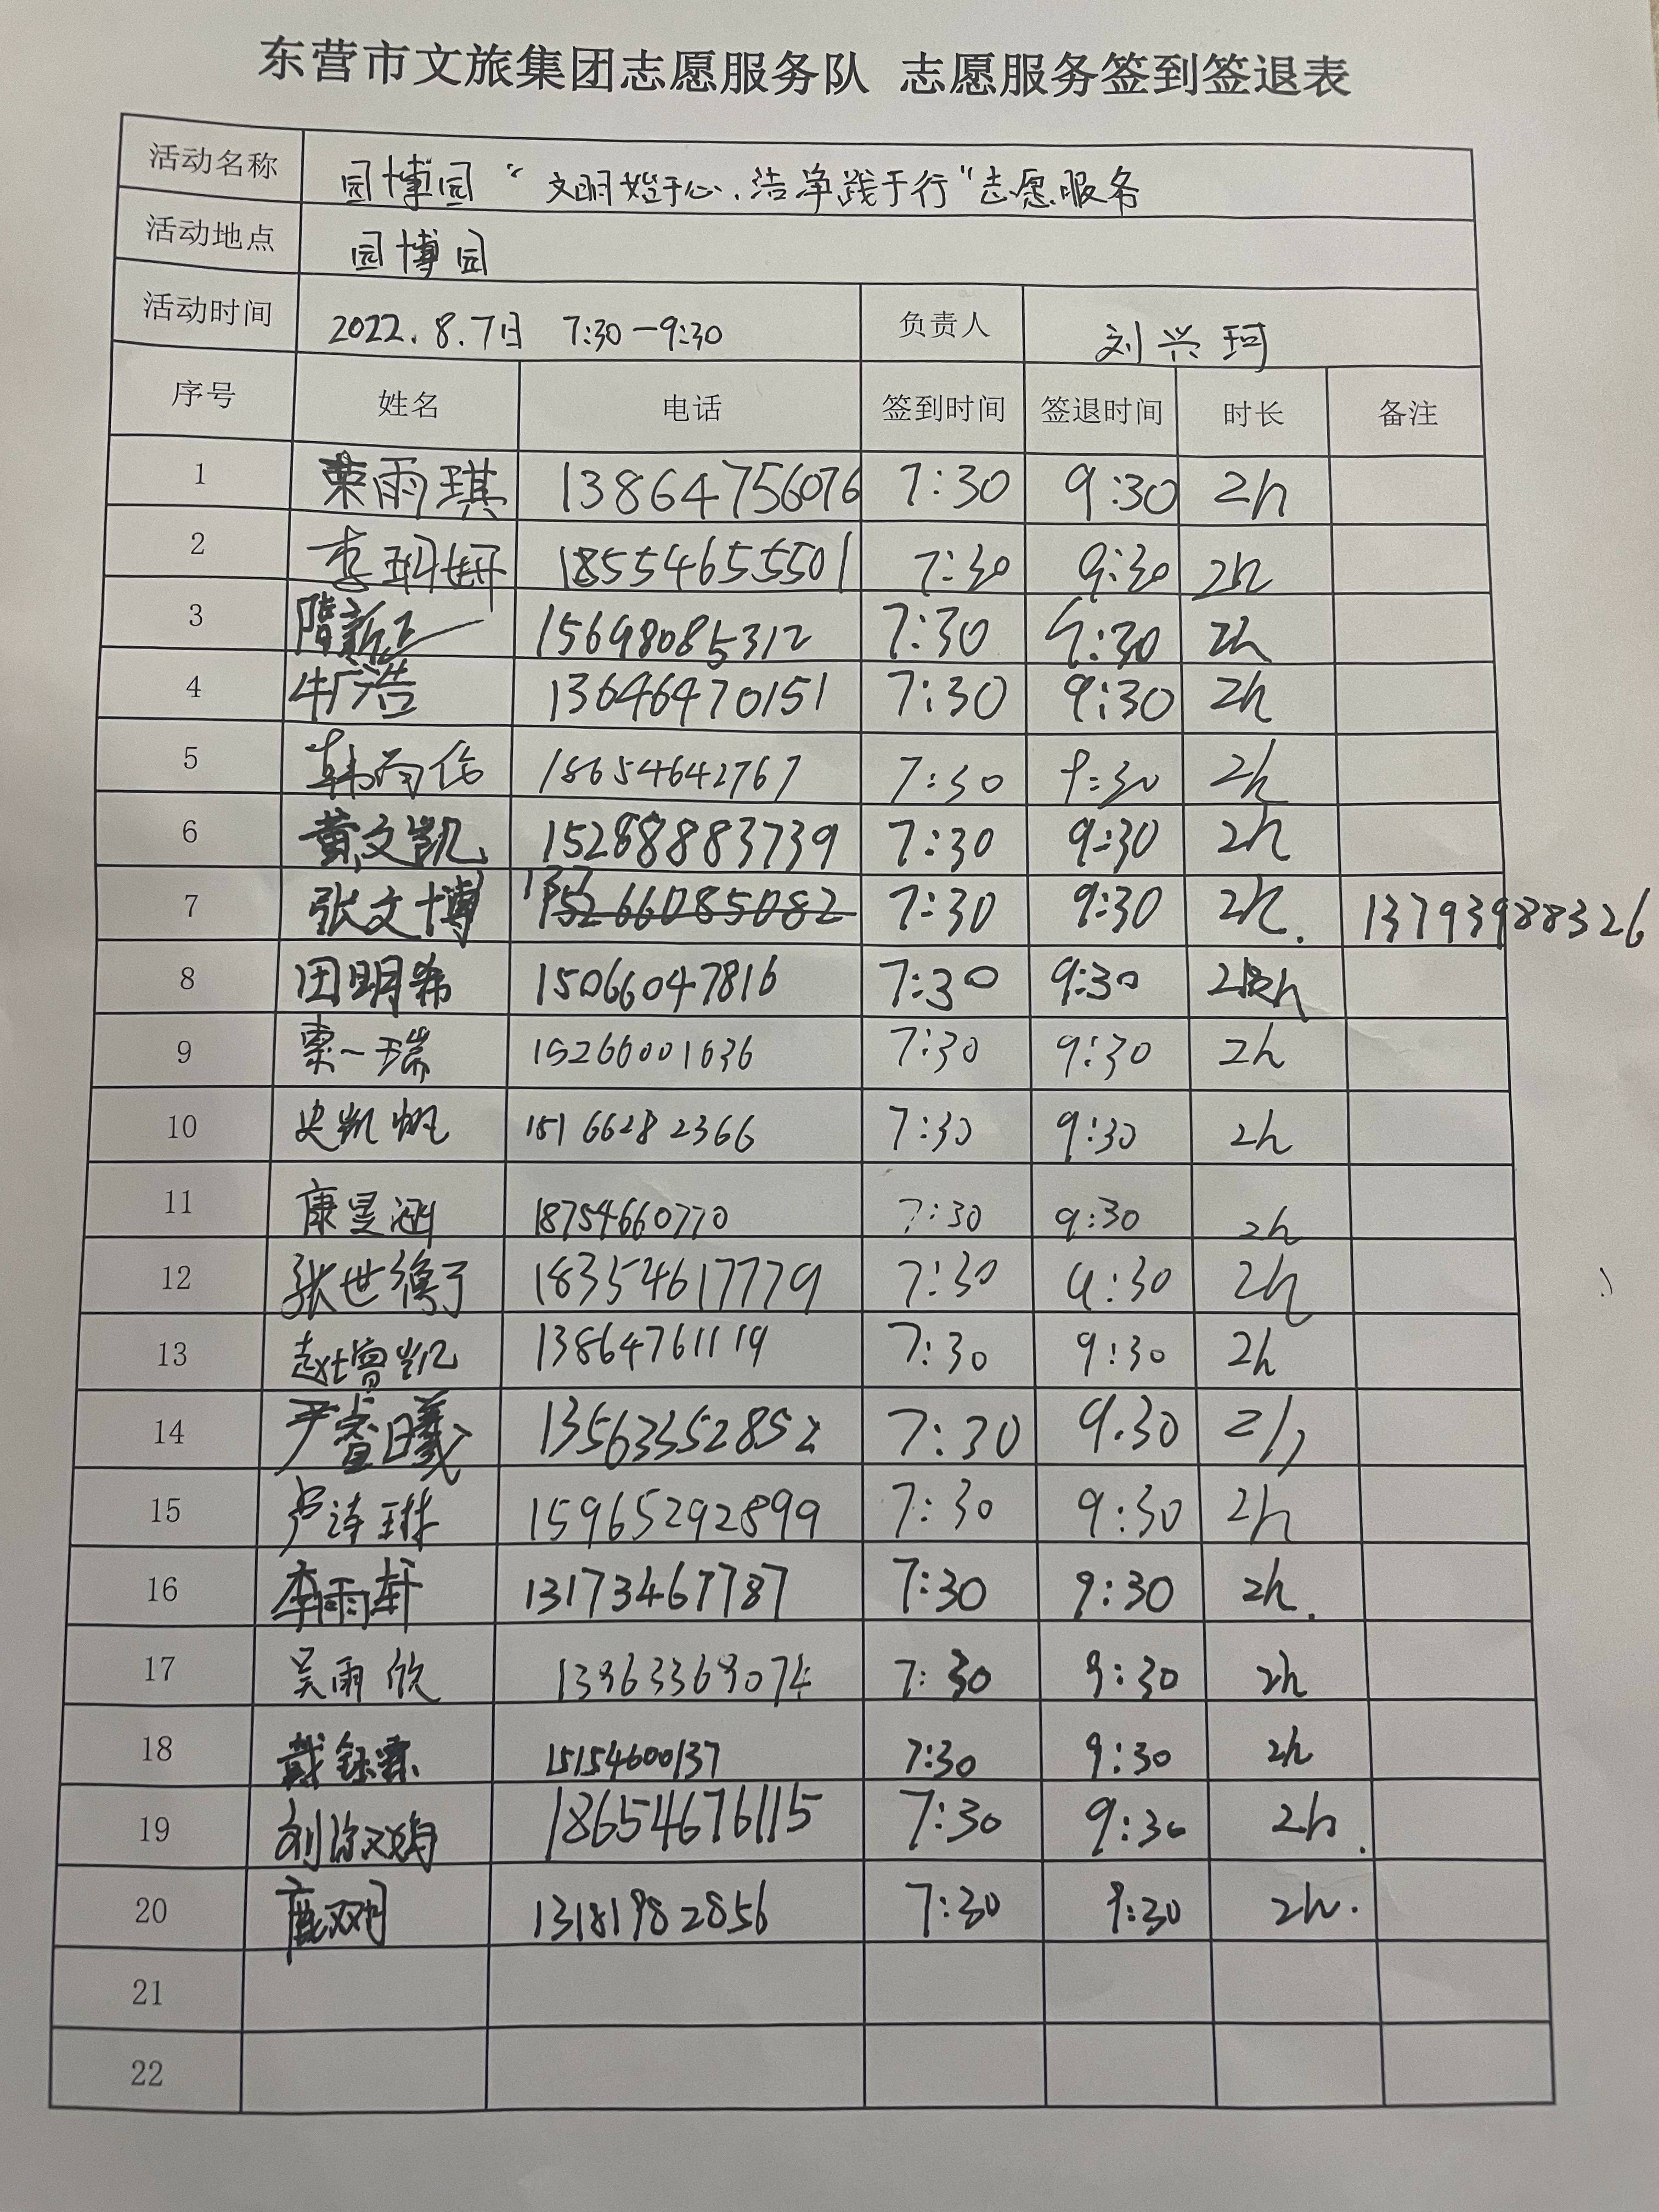 东营市文旅集团志愿服务队 志愿服务签到签退表
活动名称 园博园“文明始于心,洁净践于行”志愿服务
活动地点 园博园
活动时间 2022.8.7日 7:30-9:30 负责人 刘兴珂
序号 姓名 电话 签到时间 签退时间 时长 备注
1 荣雨琪 13864756076 7:30 9:30 2h
2 李玥妍 18554655501 7:30 9:30 2h
3 隋新 15698085312 7:30 9:30 2h
4 牛广浩 13646470151 7:30 9:30 2h
5 韩雨 18654642767 7:30 9:30 2h
6 黄文凯 15288883739 7:30 9:30 2h
7 张文博 137 15266085082 7:30 9:30 2h. 13793988326
8 田明希 15066047816 7:30 9:30 2h
9 一瑞 15266001636 7:30 9:30 2h
10 史凯帆 15166282366 7:30 9:30 2h
11 康昱涵 18754660770 7:30 9:30 2h
12 张世 18354617779 7:30 9:30 2h
13 赵增凯 13864761119 7:30 9:30 2h
14 尹睿曦 13563352852 7:30 9.30 2h
15 卢诗琳 15965292899 7:30 9:30 2h
16 李雨轩 13173467787 7:30 9:30 2h.
17 吴雨欣 13963369074 7:30 9:30 2h
18 戴钰霖 15154600137 7:30 9:30 2h
19 刘 18654676115 7:30 9:30 2h.
20 鹿 13181982856 7:30 9:30 2h.
21
22